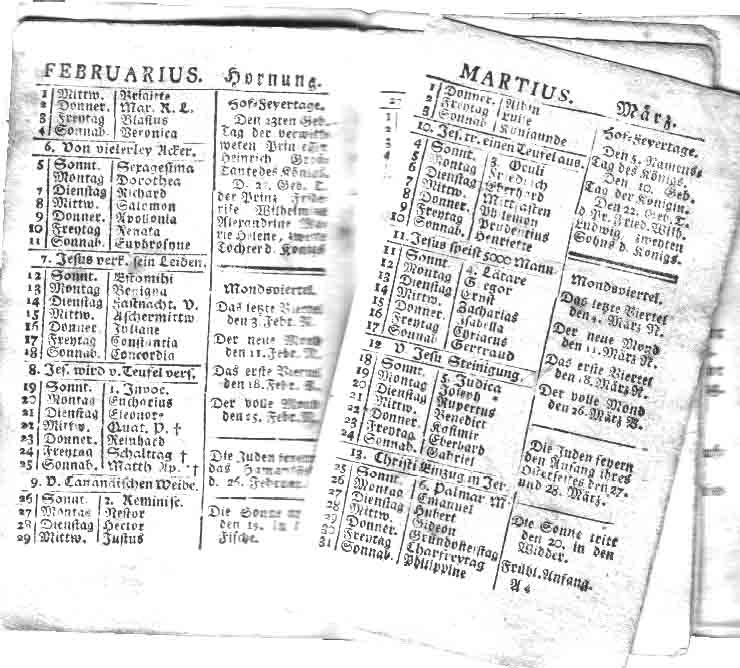 FEBRUARIUS. Hornung.
1 Mittw. Brigitte
2 Donner. Mar. R. L.
3 Freytag Blasius
4 Sonnab. Veronica
6. Von vielerley Acker.
5 Sonnt. Sexagesima
Montag Dorothea
7 Dienstag Richard
8 Mittw. Salomon
9 Donner. Apollonia
10 Freytag Renata
11 Sonnab. Euphrosyne
7. Jesus verk. sein Leiden.
12 Sonnt. Estomihi
13 Montag Benigna
14 Dienstag Fastnacht. V.
15 Mittw. Aschermittw
16 Donner. Juliane
17 Freytag Constantia
18 Sonnab. Concordia
8. Jes. wird v. Teufel vers.
19 Sonnt. 1. Invoc.
20 Montag Eucharius
21 Dienstag Eleonore
22 Mittw. Quat. P. †
23 Donner. Reinhard
24 Freytag Schalttag †
25 Sonnab. Matth Ap. †
9. V. Cananäischen Weibe.
26 Sonnt. 2. Reminisc.
27 Montag Nestor
28 Dienstag Hector
29 Mittw. Justus
Hof-Feyertage.
Den 23ten Geb.
Tag der verwitt
weten Prin
Heinrich
Tante des Königs.
D. 27. Geb. T.
der Prinz
Wilhelm
Alexandrine
Helene, zweyte
Tochter d. Königs
Mondsviertel.
Das letzte Viertel
den 3. Febr. N.
Der neue Mond
den 11. Febr. N.
Das erste Viertel
den 18. Febr.
Der volle Mond
den 25. Febr.
Die Juden feyern
das Haman
d. 26. Februar
Die Sonne
den 19. in
Fische.
MARTIUS. März.
1 Donner. Albin
2 Freytag Luise
3 Sonnab Kunigunde
10. Jes. tr. einen Teufel aus.
4 Sonnt. 3. Oculi
5 Montag Friedrich
6 Dienstag Eberhard
7 Mittw. Mittfasten
8 Donner. Philemon
9 Freytag Prudentius
10 Sonnab. Henriette
11. Jesus speist 5000 Mann
11 Sonnt. 4. Lätare
12 Montag Gregor
13 Dienstag Ernst
14 Mittw. Zacharias
15 Donner. Isabella
16 Freytag Cyriacus
17 Sonnab Gertraud
12 V. Jesu Steinigung.
18 Sonnt. 5. Judica
19 Montag Joseph
20 Dienstag Rupertus
21 Mittw. Benedict
22 Donner. Kasimir
23 Freytag Eberhard
24 Sonnab. Gabriel
13. Christi Einzug in Jer.
25 Sonnt. 6. Palmar M.
26 Montag Emanuel
27 Dienstag Hubert
28 Mittw. Gideon
29 Donner. Gründonnerstag
30 Freytag Charfreytag
31 Sonnab. Philippine
Hof-Feyertage.
Den 5. Namens-
Tag des Königs.
Den 10. Geb.
Tag der Königin.
Den 22. Geb. T.
d Pr. Fried. Wilh.
Ludwig, zweyten
Sohns d. Königs.
Mondsviertel.
Das letzte Viertel
den 4. März N.
Der neue Mond
den 11. März N.
Das erste Viertel
den 18. März N.
Der volle Mond
den 26. März V.
Die Juden feyern
den Anfang ihres
Osterfestes den 27.
und 28. März.
Die Sonne tritt
den 20. in den
Widder.
Frühl. Anfang.
A 4